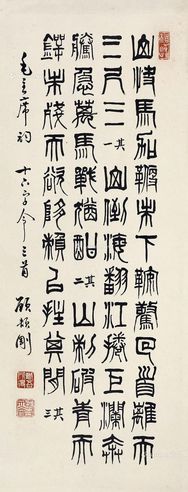 山快馬加鞭未下鞍驚回首離天
三尺三 其一 山倒海翻江捲巨瀾奔
騰急萬馬戰猶酣 其二 山刺破青天
鍔未殘天欲墮賴㠯拄其間 其三
毛主席詞 十六字令三首 顧頡剛